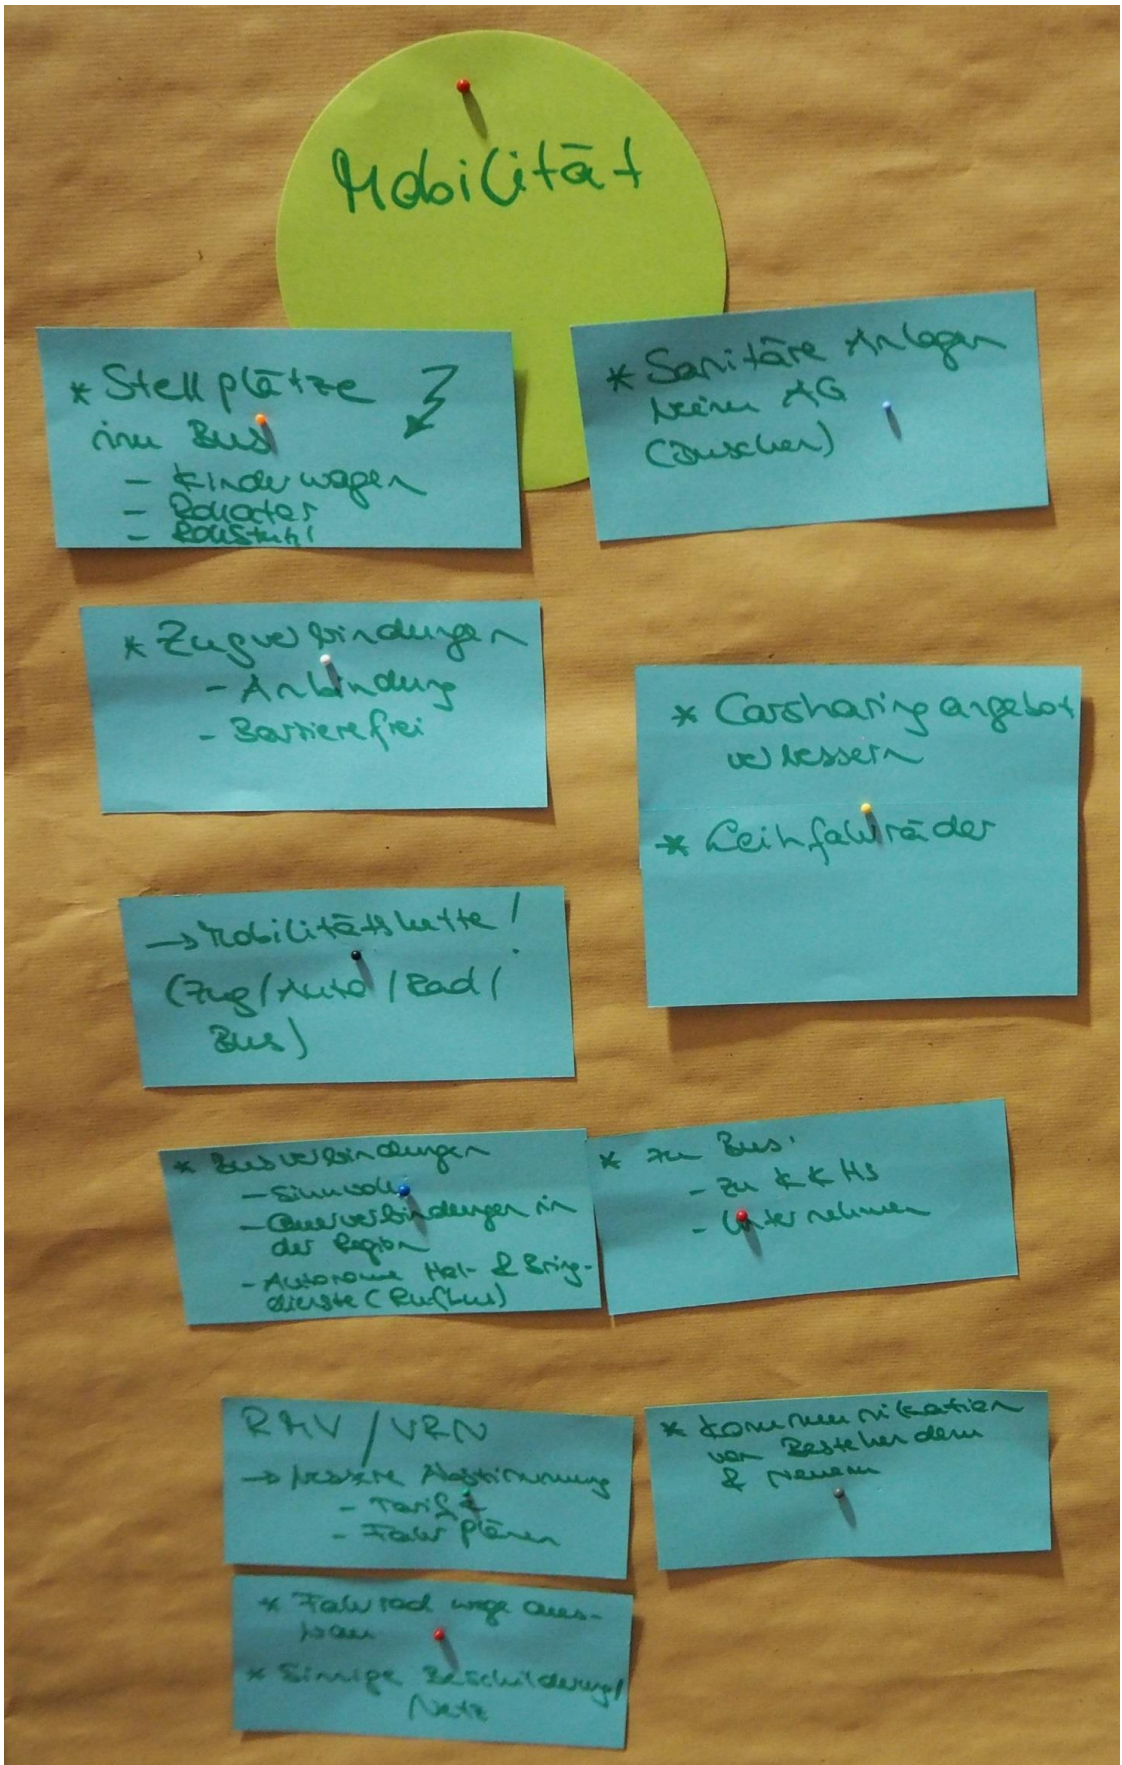 Mobilität
* Stellplätze
im Bus
- Kinderwagen
- Rollator
- Rollstuhl
* Sanitäre Anlagen
beim AG
(Duschen)
* Zugverbindungen
- Anbindung
- Barrierefrei
* Carsharingangebot
verbessern
* Leihfahrräder
→ Mobilitätskette!
(Zug/Auto/Rad/
Bus)
* Busverbindungen
- Sinnvoll
- Querverbindungen in
der Region
- Autonome Hol- & Bring-
dienste (Rufbus)
* zu Bus:
- zu KKHs
- Unternehmen
RMV / VRN
→ bessere Abstimmung
- Tarife
- Fahrpläne
* Kommunikation
von Bestehendem
& Neuem
* Fahrradwege aus-
bau
* Sinnige Beschilderung/
Netz